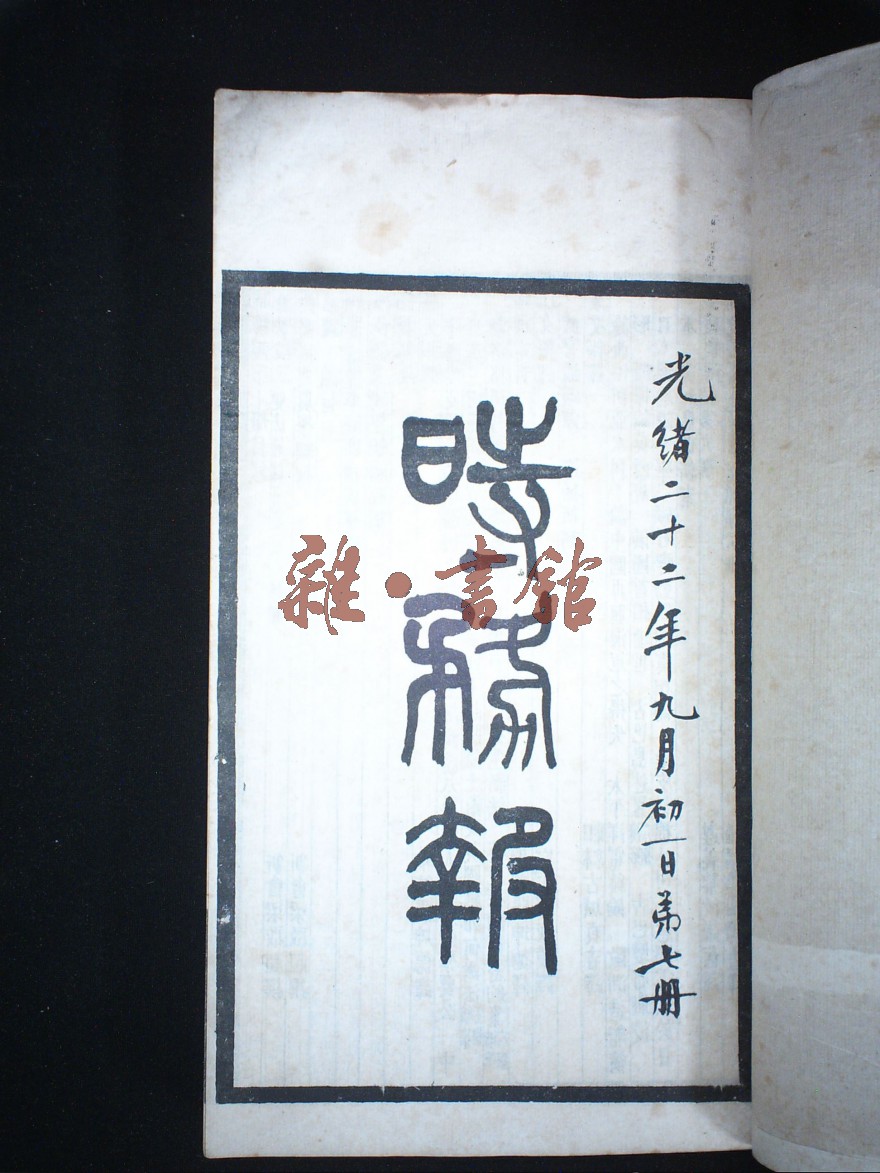 光緒二十二年九月初一日第七册
時務報
雜·書館